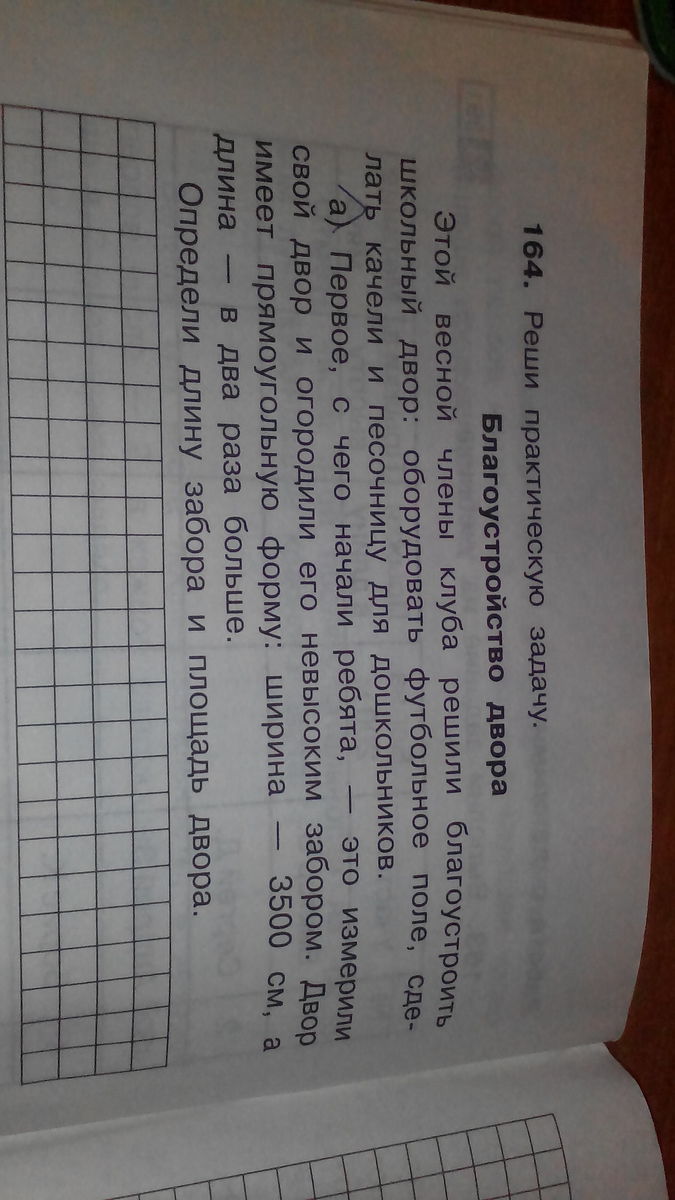 164. Реши практическую задачу.
Благоустройство двора
Этой весной члены клуба решили благоустроить
школьный двор: оборудовать футбольное поле, сде-
лать качели и песочницу для дошкольников.
а) Первое, с чего начали ребята, — это измерили
свой двор и огородили его невысоким забором. Двор
имеет прямоугольную форму: ширина — 3500 см, а
длина — в два раза больше.
Определи длину забора и площадь двора.